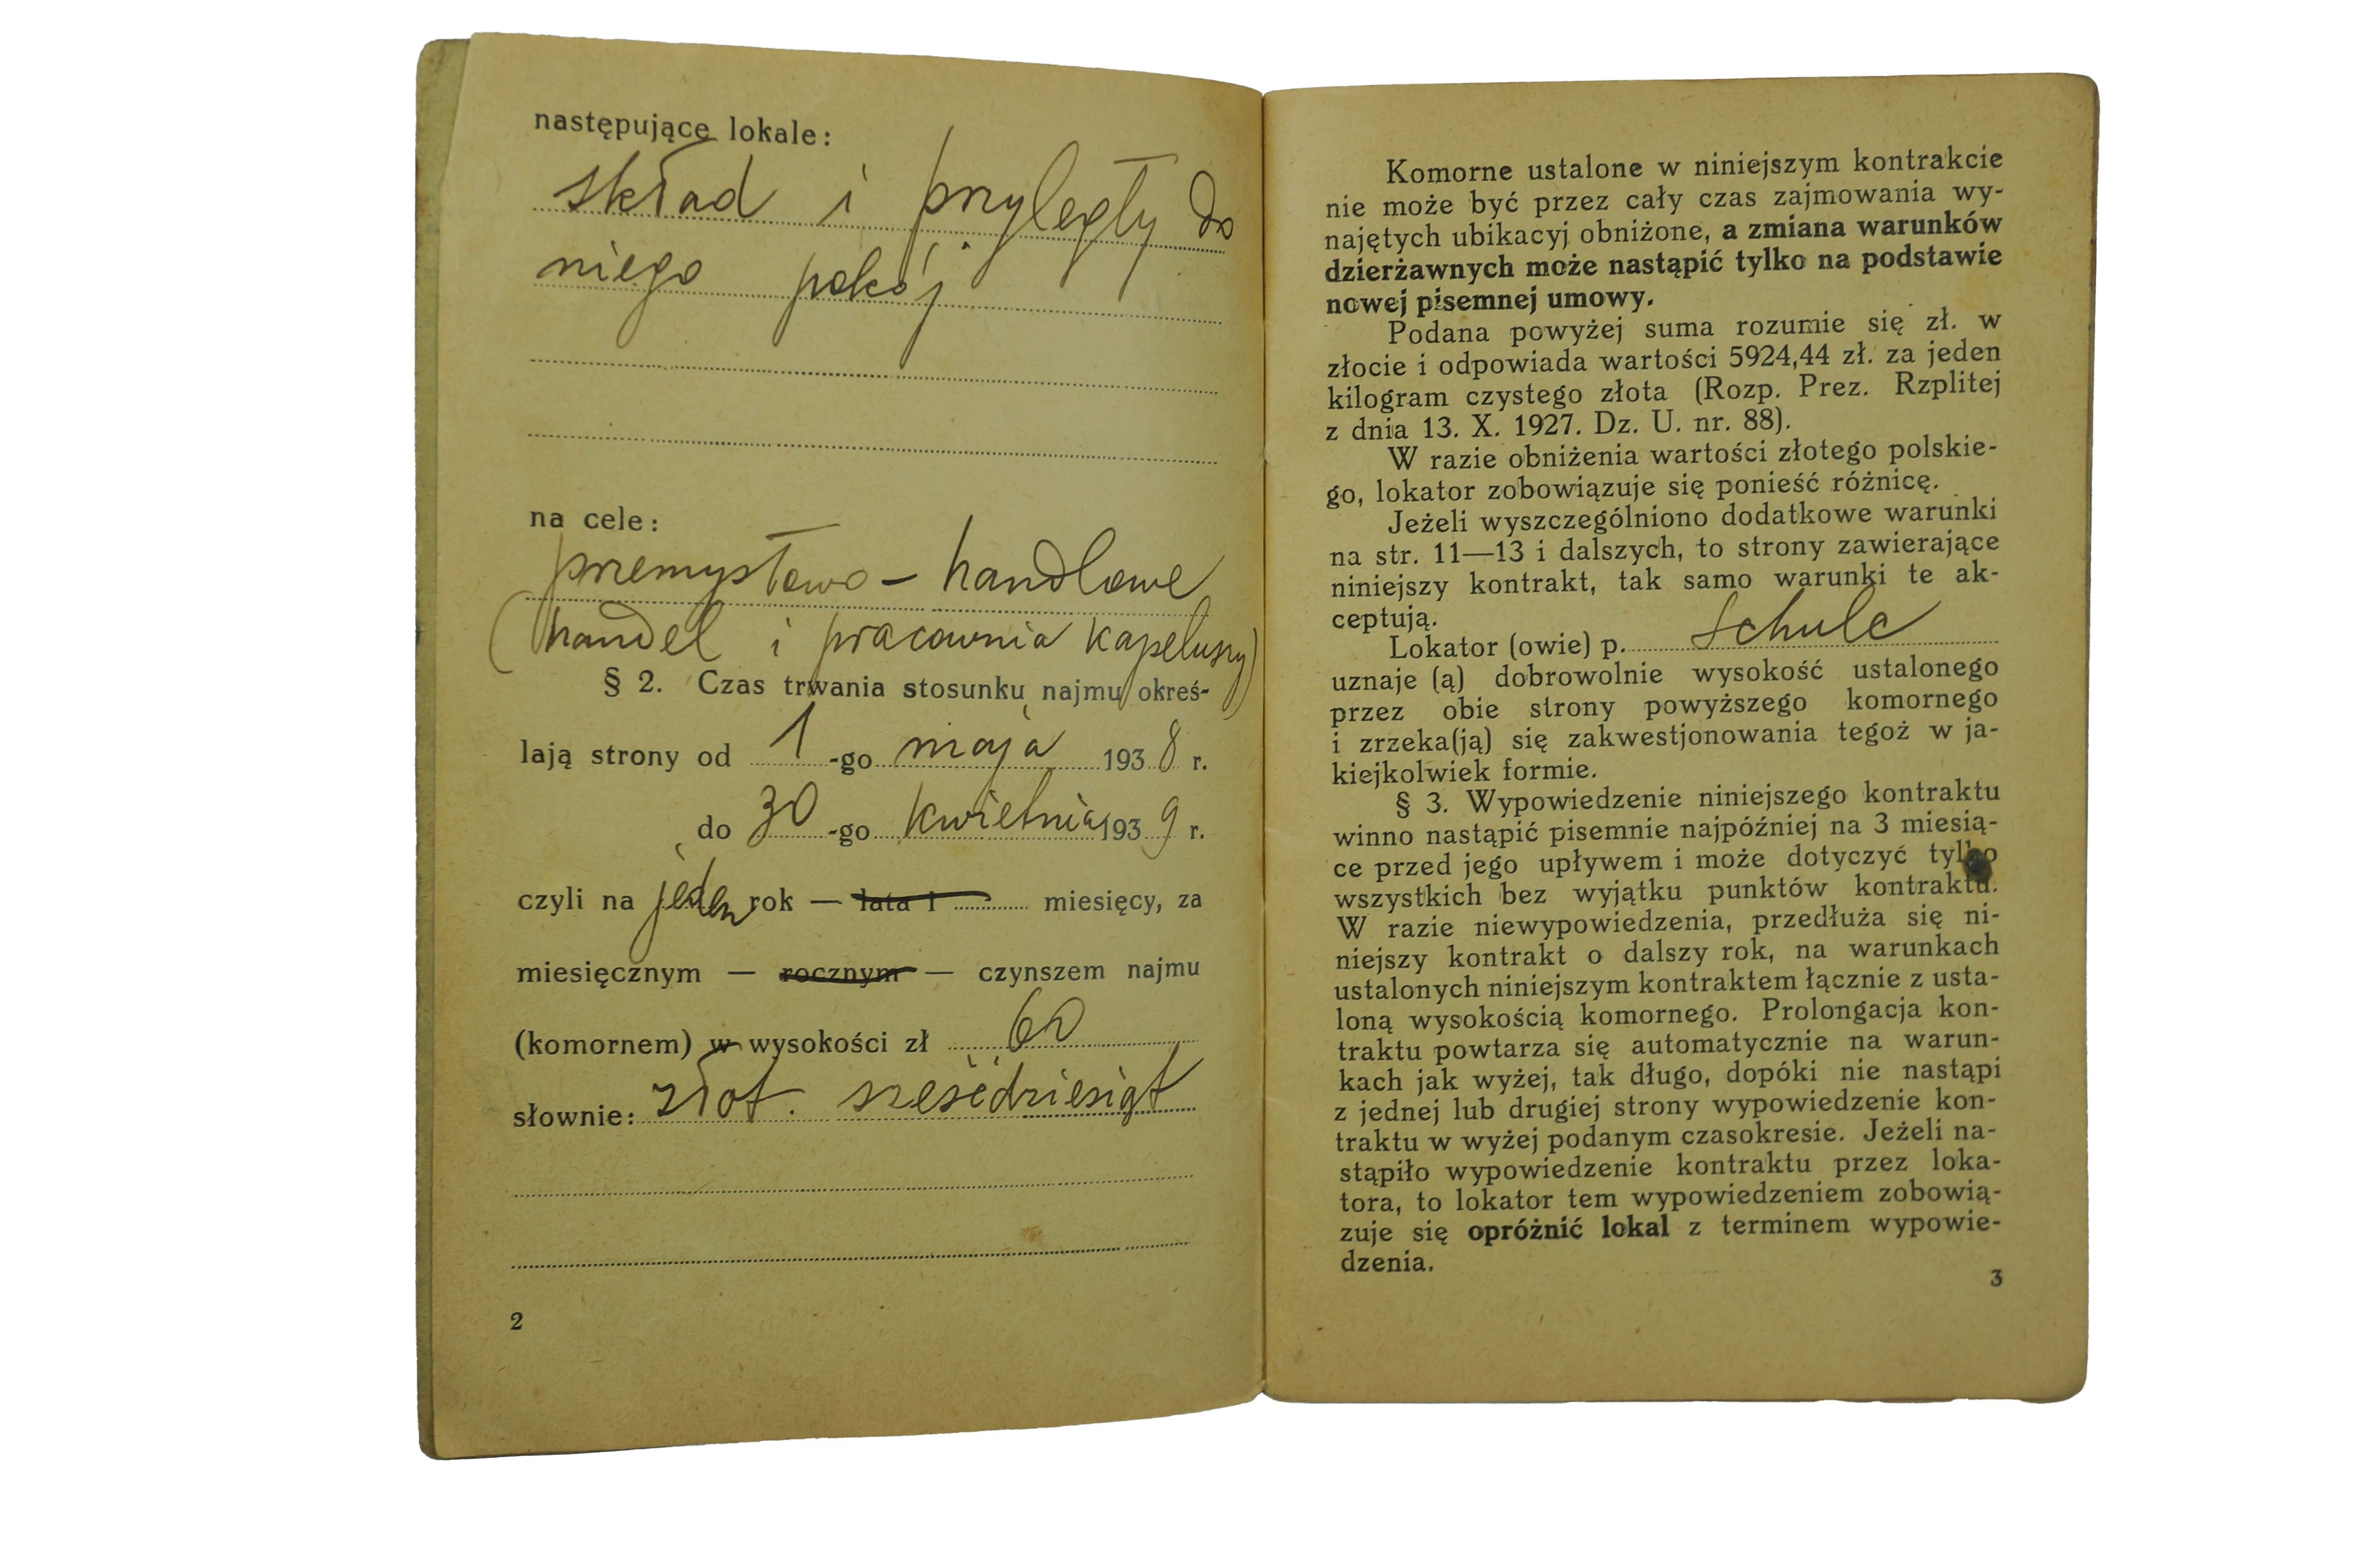 następujące lokale:
skład i przyległy do
niego pokój
na cele:
przemysłowo - handlowe
(handel i pracownia kapeluszy)
§ 2. Czas trwania stosunku najmu okreś-
lają strony od 1 -go maja 1938 r.
do 30 -go kwietnia 1939 r.
czyli na jeden rok — lata i ........ miesięcy, za
miesięcznym — rocznym — czynszem najmu
(komornem) w wysokości zł 60
słownie: złot. sześćdziesiąt
2
Komorne ustalone w niniejszym kontrakcie
nie może być przez cały czas zajmowania wy-
najętych ubikacyj obniżone, a zmiana warunków
dzierżawnych może nastąpić tylko na podstawie
nowej pisemnej umowy.
Podana powyżej suma rozumie się zł. w
złocie i odpowiada wartości 5924,44 zł. za jeden
kilogram czystego złota (Rozp. Prez. Rzplitej
z dnia 13. X. 1927. Dz. U. nr. 88).
W razie obniżenia wartości złotego polskie-
go, lokator zobowiązuje się ponieść różnicę.
Jeżeli wyszczególniono dodatkowe warunki
na str. 11—13 i dalszych, to strony zawierające
niniejszy kontrakt, tak samo warunki te ak-
ceptują.
Lokator (owie) p. Schulc
uznaje (ą) dobrowolnie wysokość ustalonego
przez obie strony powyższego komornego
i zrzeka(ją) się zakwestjonowania tegoż w ja-
kiejkolwiek formie.
§ 3. Wypowiedzenie niniejszego kontraktu
winno nastąpić pisemnie najpóźniej na 3 miesią-
ce przed jego upływem i może dotyczyć tylko
wszystkich bez wyjątku punktów kontraktu.
W razie niewypowiedzenia, przedłuża się ni-
niejszy kontrakt o dalszy rok, na warunkach
ustalonych niniejszym kontraktem łącznie z usta-
loną wysokością komornego. Prolongacja kon-
traktu powtarza się automatycznie na warun-
kach jak wyżej, tak długo, dopóki nie nastąpi
z jednej lub drugiej strony wypowiedzenie kon-
traktu w wyżej podanym czasokresie. Jeżeli na-
stąpiło wypowiedzenie kontraktu przez loka-
tora, to lokator tem wypowiedzeniem zobowią-
zuje się opróżnić lokal z terminem wypowie-
dzenia.
3